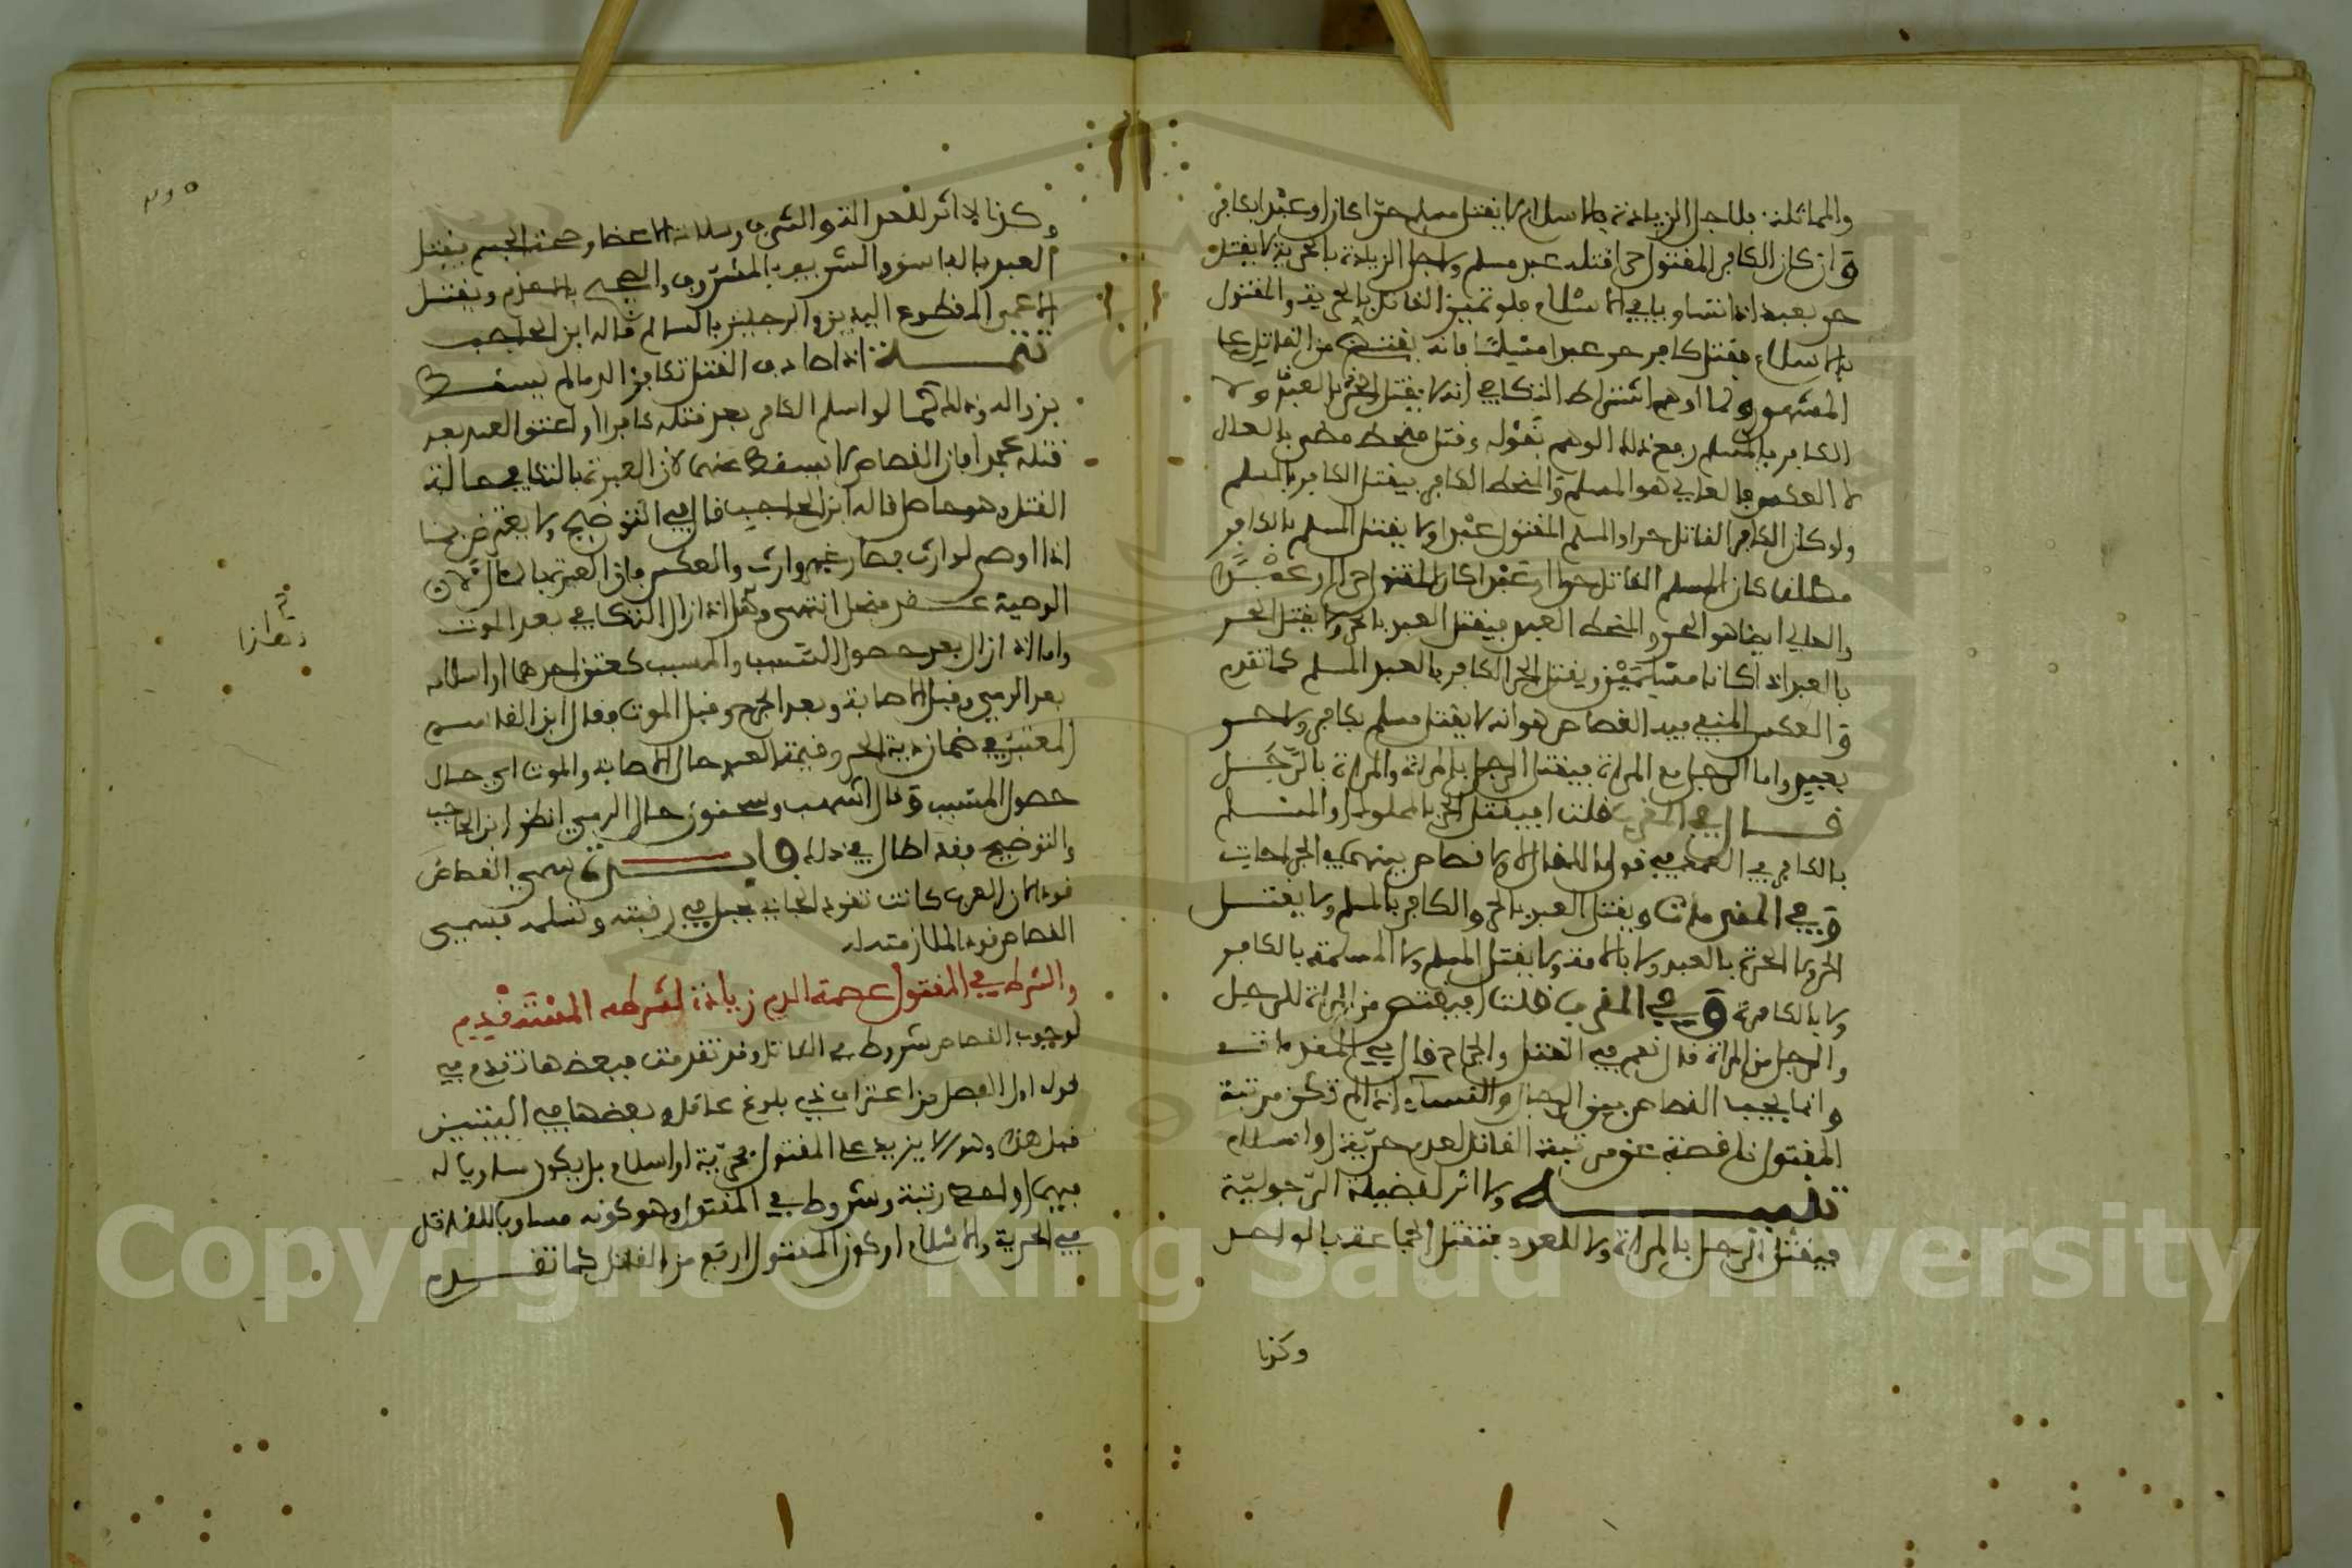 والمماثلة فلاجل الزيادة بالاسلام لا يقتل مسلم حرا كان او عبدا بكافر
وان كان الكافر المقتول حرا قتله عبد مسلم ولاجل الزيادة بالحرية لا يقتل
حر بعبد اذا تساويا في الاسلام فلو تميز القاتل بالحرية والمقتول
بالاسلام فقتل كافر حر عبدا مسلما فانه يقتص من القاتل على
المشهور ولما اوهم اشتراط التكافي انه لا يقتل الحر بالعبد ولا
الكافر بالمسلم رفع ذلك الوهم بقوله وقتل منحط مضى بالعال
لا العكس فالعالي هو المسلم والمنحط الكافر فيقتل الكافر بالمسلم
ولو كان الكافر القاتل حرا والمسلم المقتول عبدا ولا يقتل المسلم بالكافر
مطلقا كان المسلم القاتل حرا او عبدا كان المقتول حرا او عبدا
والعالي ايضا هو الحر والمنحط العبد فيقتل العبد بالحر ولا يقتل الحر
بالعبد اذا كانا مسلمين ويقتل الحر الكافر بالعبد المسلم كما تقدم
والعكس المنفي فيه القصاص هو انه لا يقتل مسلم بكافر ولا حر
بعبد واما الرجل مع المراة فيقتل الرجل بالمراة والمراة بالرجل
قال في المقرب قلت افيقتل الحر بالمملوك او المسلم
بالكافر في العمد في قول مالك قال لا ولا قصاص بينهم في الجراحات
وفي المقدمات ويقتل العبد بالحر والكافر بالمسلم ولا يقتل
الحر ولا الحرة بالعبد ولا بالامة ولا يقتل المسلم ولا المسلمة بالكافر
ولا بالكافرة وفي المقرب قلت افيقتص من المراة للرجل
والرجل من المراة قال نعم في القتل والجراح قال في المقدمات
وانما يجب القصاص بين الرجال والنساء اذا لم تكن مرتبة
المقتول ناقصة عن مرتبة القاتل لعدم حرية او اسلام
تنبيه ولا اثر لفضيلة الرجولية
فيقتل الرجل بالمراة ولا للعدد فتقتل الجماعة بالواحد
وكذا
وكذا لا اثر للعدالة والشرف وسلامة الاعضا وصحة الجسم فيقتل
العدل بالفاسق والشريف بالمشروف والصحيح بالسقيم ويقتل
الاعمى المقطوع اليدين والرجلين بالسالم قاله ابن الحاجب
تتمة اذا صادف القتل تكافؤ الدما لم يسقط
بزواله وذلك كما لو اسلم الكافر بعد قتله كافرا او اعتق العبد بعد
قتله عبدا فان القصاص لا يسقط عنهما لان العبرة بالتكافي حالة
القتل وهو حاصل قاله ابن الحاجب قال في التوضيح ولا يعترض بما
اذا اوصى لوارث فصار غير وارث والعكس فان العبرة بالمآل لان
الوصية عقد منحل انتهى وهذا اذا زال التكافي بعد الموت
واما اذا زال بعد حصول السبب والمسبب كعتق احدهما او اسلامه
بعد الرمي وقبل الاصابة وبعد الجرح وقبل الموت فقال ابن القاسم
المعتبر في ضمان دية الحر وقيمة العبد حال الاصابة والموت اي حال
حصول المسبب وقال اشهب وسحنون حال الرمي انظر ابن الحاجب
والتوضيح فقد اطال في ذلك فايدة سمي القصاص
قودا لان العرب كانت تقود الجاني بحبل في رقبته وتسلمه فسمي
القصاص قودا لملازمته له
والشرط في المقتول عصمة الدم زيادة لشرطه المستقدم
لوجوب القصاص شروط في القاتل وقد تقدمت فبعضها تقدم في
قوله اول الفصل من اعتراف ذي بلوغ عاقل وبعضها في البيتين
قبل هذا وهو لا يزيد على المقتول بحرية او اسلام بل يكون مساويا له
فيهما او احط رتبة وشروط في المقتول وهو كونه مساويا للقاتل
في الحرية والاسلام او كون المقتول ارفع من القاتل كما تقدم